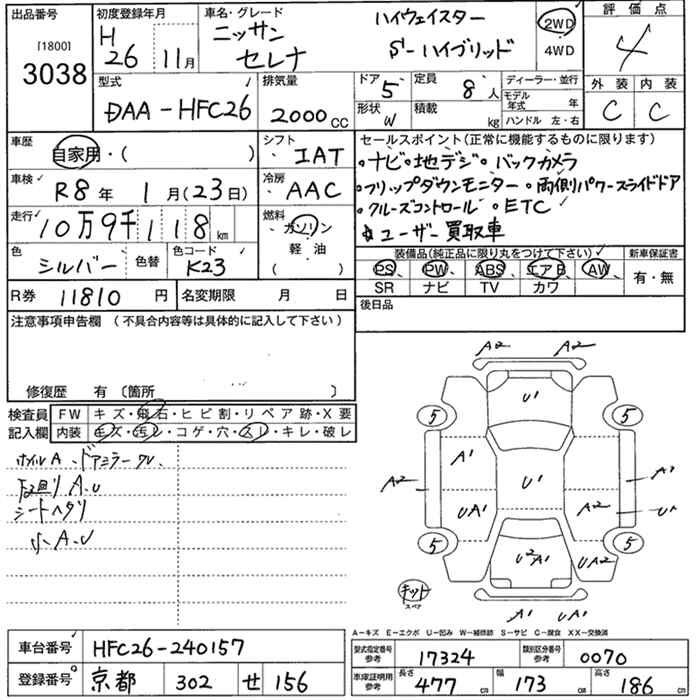 出品番号
[1800]
3038
初度登録年月
H
26 11月
車名・グレード
ニッサン ハイウェイスター
セレナ S-ハイブリッド
2WD
4WD
評価点
4
外装 内装
C C
型式
DAA-HFC26
排気量
2000 CC
ドア 5
定員 8 人
形状 W
積載 kg
ディーラー・並行
モデル年式 年
ハンドル 左・右
車歴
自家用・( )
シフト
IAT
車検
R8 年 1 月(23日)
冷房
AAC
走行
10万9千118 km
燃料
ガソリン
軽・油
( )
色
シルバー
色替
色コード
K23
R券 11810 円
名変期限 月 日
セールスポイント(正常に機能するものに限ります)
・ナビ・地デジ・バックカメラ
・フリップダウンモニター・両側パワースライドドア
・クルーズコントロール・ETC
☆ユーザー買取車
装備品(純正品に限り丸をつけて下さい)
新車保証書
PS PW ABS エアB AW
SR ナビ TV カワ
有・無
後日品
注意事項申告欄 (不具合内容等は具体的に記入して下さい)
修復歴 有 〔箇所 〕
検査員
記入欄
FW キズ・飛石・ヒビ割・リペア跡・X要
内装 キズ・汚レ・コゲ・穴・スレ・キレ・破レ
ホイルA、ドアミラークレ、
下廻りA.U
シートヘタリ
A.U
A2 A2
U1
5 5
A1
A2 U1 A1
UA1 A2 U1
5 5
U2
A1
UA2
キット
スペア
A1 UA1
A-キズ E-エクボ U-凹み W-補修跡 S-サビ C-腐食 XX-交換済
車台番号 HFC26-240157
登録番号 京都 302 せ 156
型式指定番号
参考
17324
類別区分番号
参考
0070
車庫証明用
参考
長さ 477 cm
幅 173 cm
高さ 186 cm